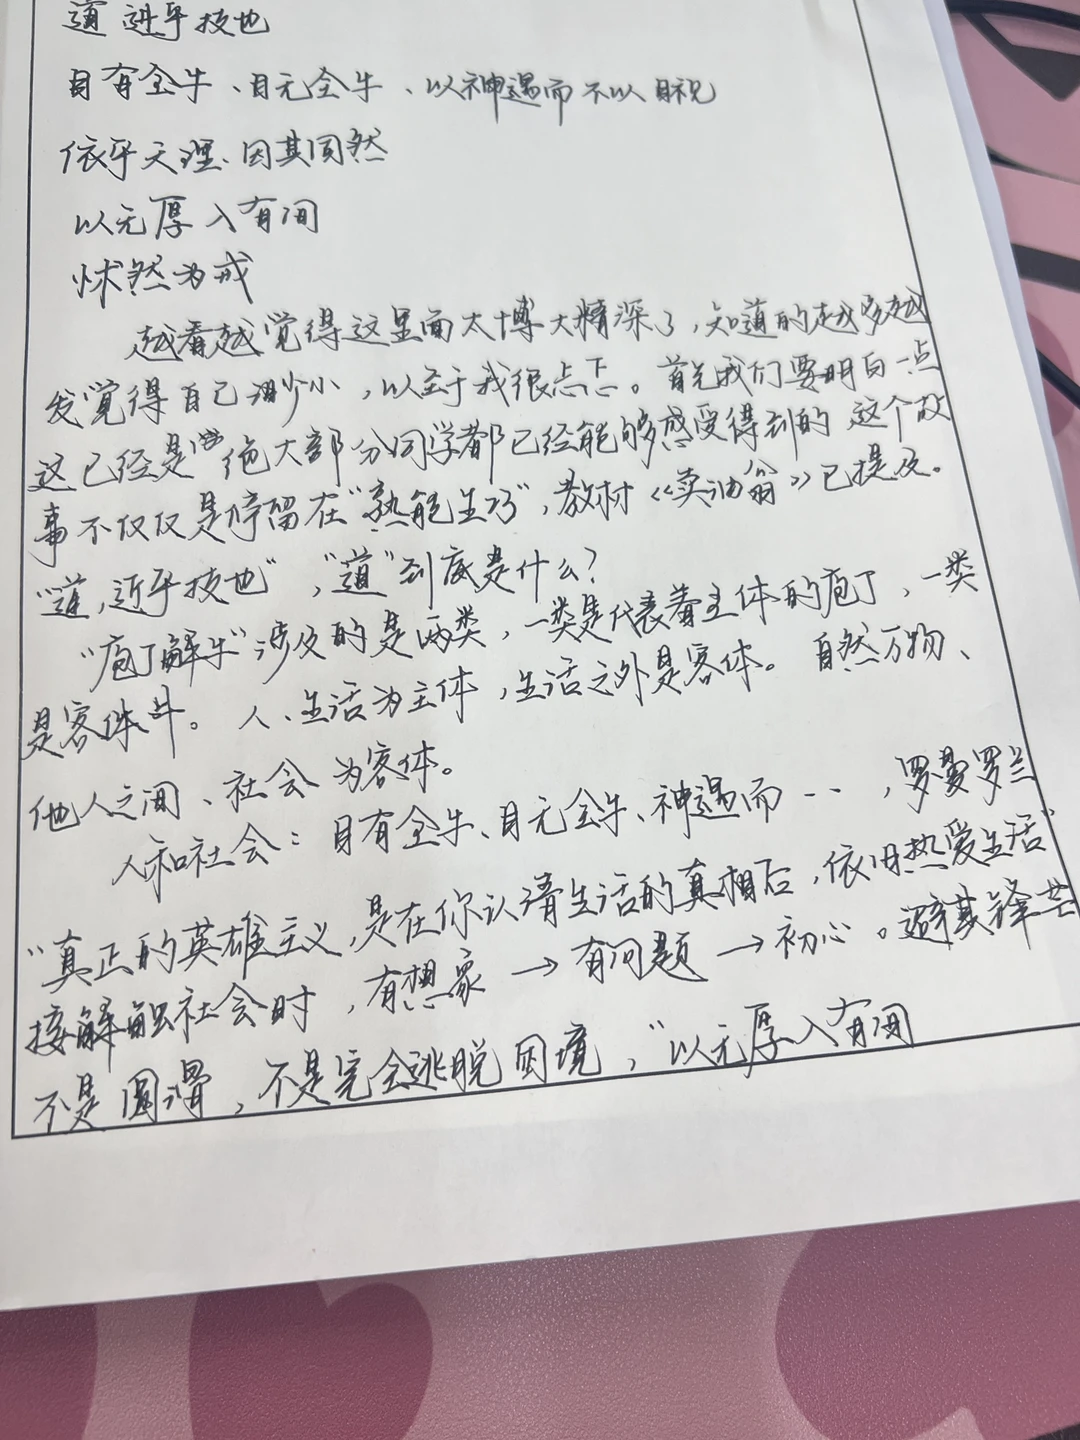 道 进乎技也
目有全牛、目无全牛、以神遇而不以目视
依乎天理、因其固然
以无厚入有间
怵然为戒
越看越觉得这里面太博大精深了,知道的越多越
发觉得自己渺小,以至于我很忐忑。首先我们要明白一点
这已经是绝大部分同学都已经能够感受得到的 这个故
事不仅仅是停留在“熟能生巧”,教材《卖油翁》已提及。
“道,近乎技也”,“道”到底是什么?
“庖丁解牛”涉及的是两类,一类是代表着主体的庖丁,一类
是客体牛。人、生活为主体,生活之外是客体。自然万物、
他人之间、社会为客体。
人和社会:目有全牛、目无全牛、神遇而..,罗曼罗兰
“真正的英雄主义,是在你认清生活的真相后,依旧热爱生活”
接触社会时,有想象→有问题→初心。避其锋芒
不是圆滑,不是完全逃脱困境,“以无厚入有间